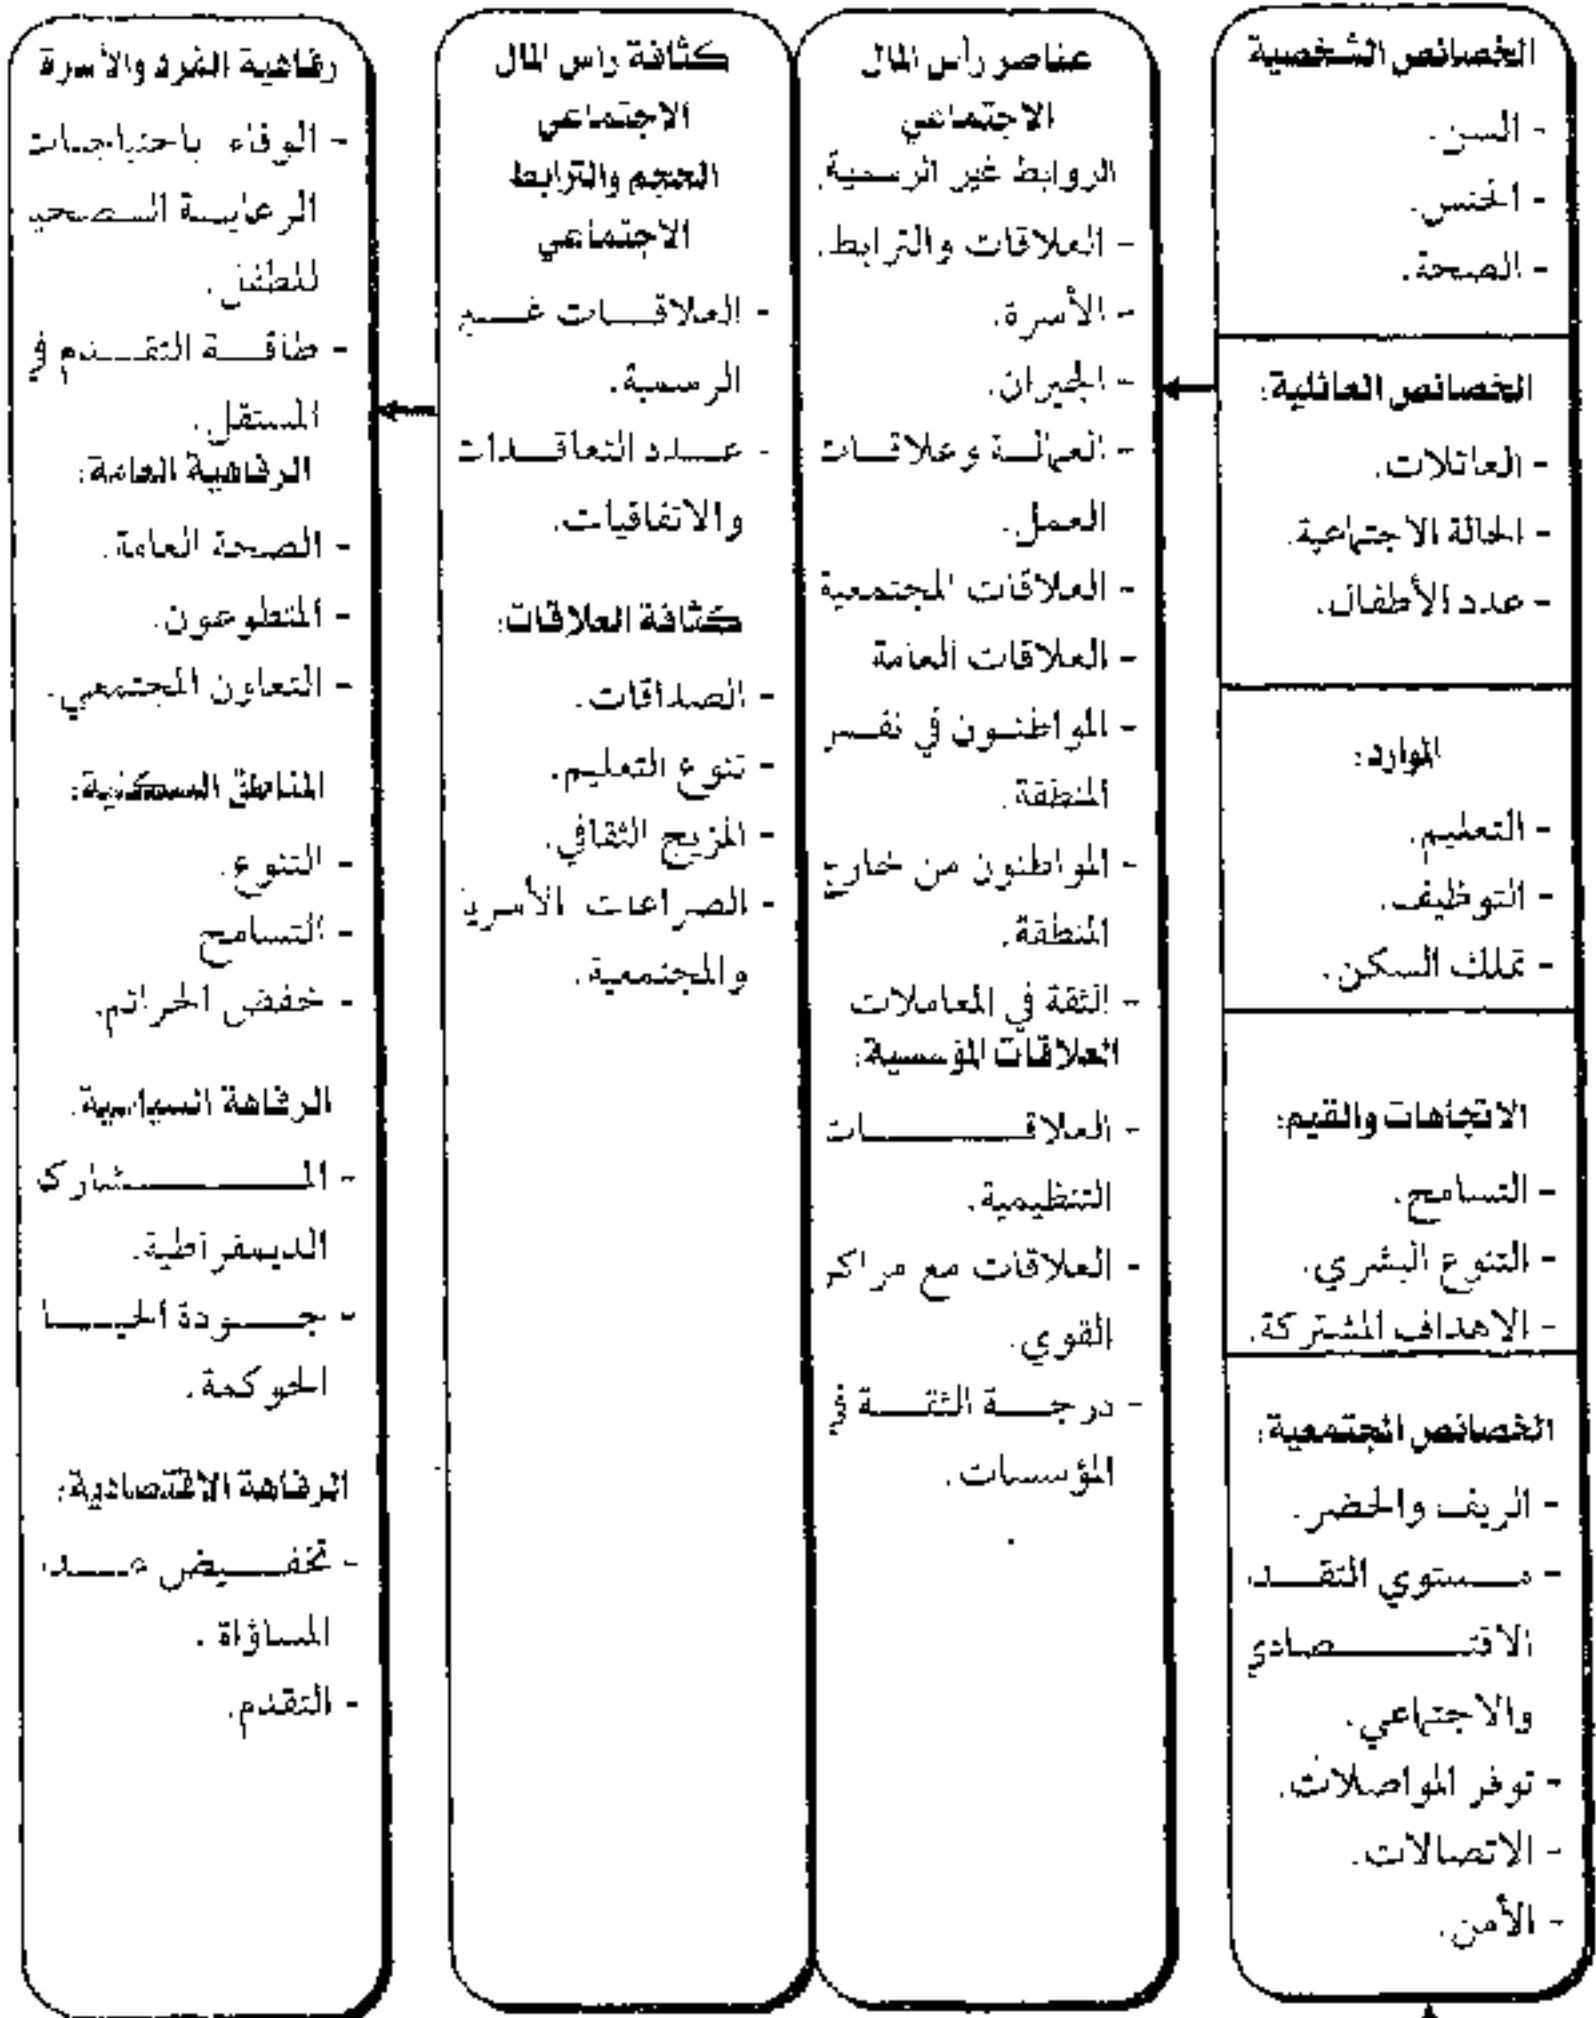 الخصائص الشخصية
- السن.
- الجنس.
- الصحة.
الخصائص العائلية:
- العائلات.
- الحالة الاجتماعية.
- عدد الأطفال.
الموارد:
- التعليم.
- التوظيف.
- تملك السكن.
الاتجاهات والقيم:
- التسامح.
- التنوع البشري.
- الاهداف المشتركة.
الخصائص المجتمعية:
- الريف والحضر.
- مستوي التقد
الاقتصادي
والاجتماعي.
- توفر المواصلات.
- الاتصالات.
- الأمن.
عناصر رأس المال
الاجتماعي
الروابط غير الرسمية.
- العلاقات والترابط.
- الأسرة.
- الجيران.
- العمالة وعلاقات
العمل.
- العلاقات المجتمعية
- العلاقات العامة
- المواطنون في نفس
المنطقة.
- المواطنون من خارج
المنطقة.
- الثقة في المعاملات
العلاقات المؤسسية:
- العلاقات
التنظيمية.
- العلاقات مع مراكز
القوي.
- درجة الثقة في
المؤسسات.
كثافة راس المال
الاجتماعي
الحجم والترابط
الاجتماعي
- العلاقات غير
الرسمية.
- عدد التعاقدات
والاتفاقيات.
كثافة العلاقات:
- الصداقات.
- تنوع التعليم.
- المزيج الثقافي.
- الصراعات الأسرية
والمجتمعية.
رفاهية الفرد والأسرة
- الوفاء باحتياجات
الرعاية الصحي
للطفل.
- طاقة التقدم في
المستقل.
الرفاهية العامة:
- الصحة العامة.
- المتطوعون.
- التعاون المجتمعي.
المناطق السكنية:
- التنوع.
- التسامح
- خفض الجرائم.
الرفاهة السياسية:
- المشارك
الديمقراطية.
- جودة الحيا
الحوكمة.
الرفاهة الاقتصادية:
- تخفيض عد
المساؤاة.
- التقدم.